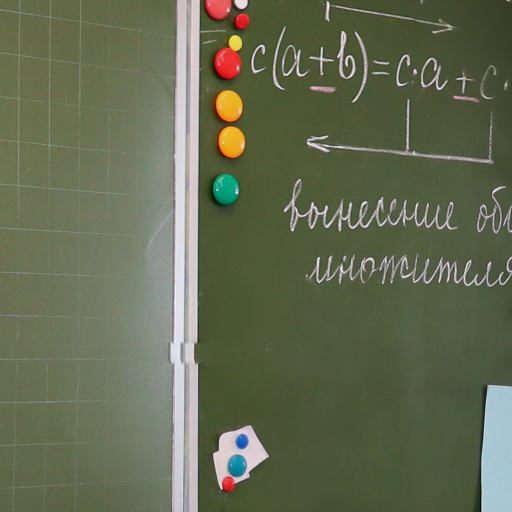 c(a+b)=c·a+c·
вынесение об
множителя